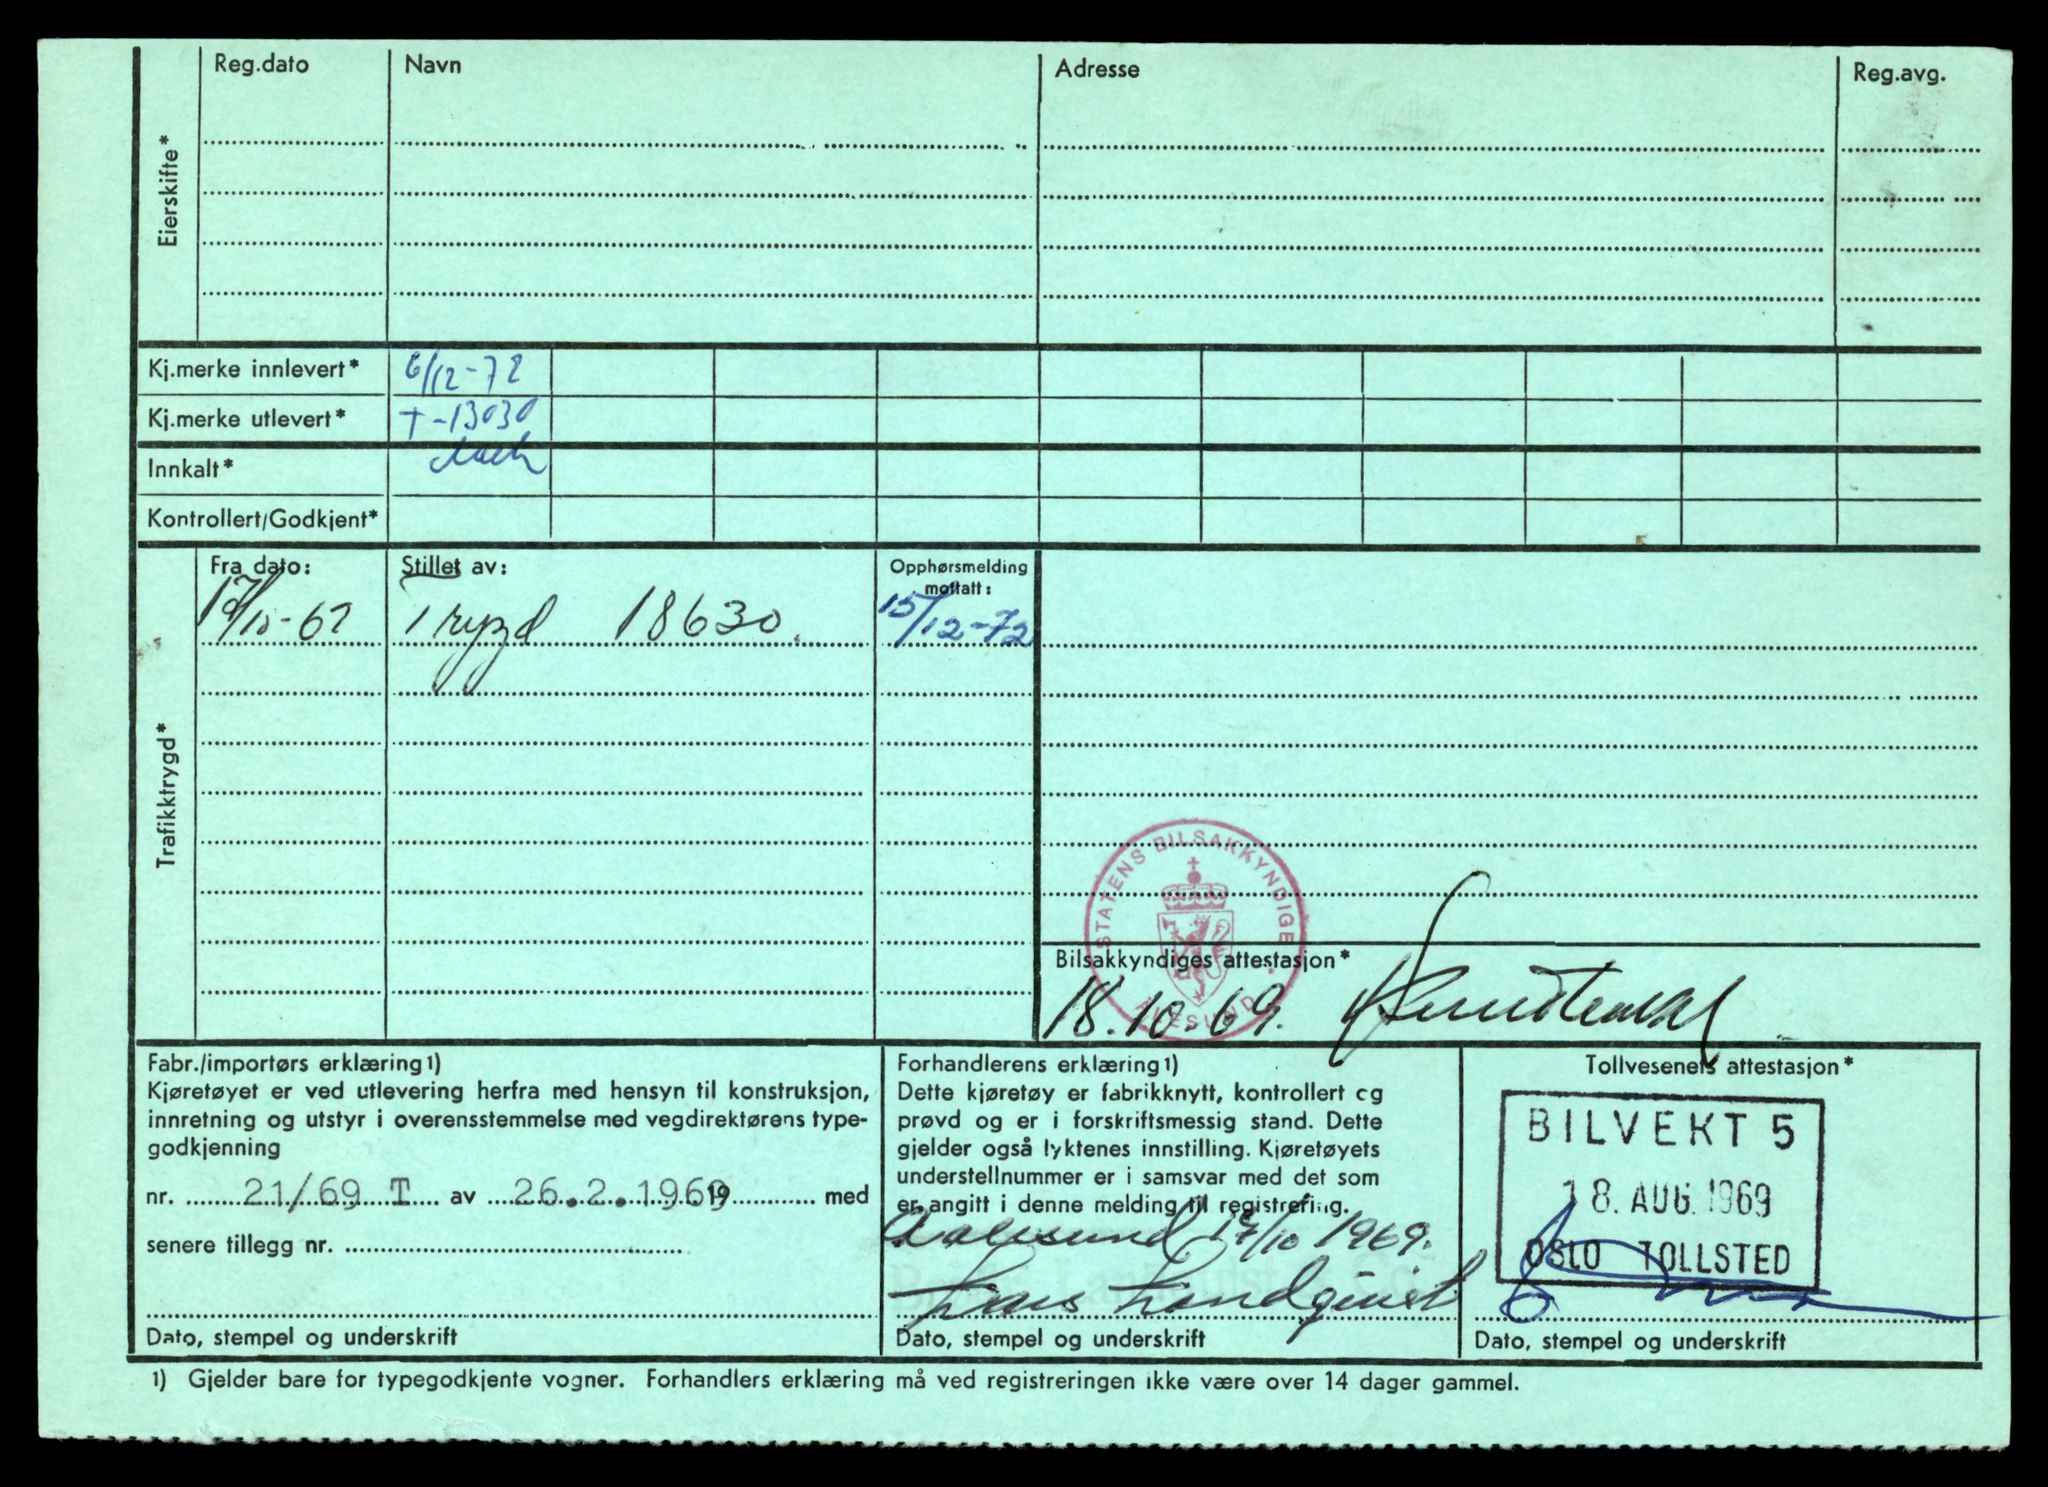 Reg.dato Navn Adresse Reg.avg.
Eierskifte*
Kj.merke innlevert* 6/12-72
Kj.merke utlevert* T-13030
Innkalt*
Kontrollert/Godkjent*
Trafikktrygd*
Fra dato: Stillet av: Opphørsmelding
mottatt:
Trygd 18630. 15/12-72
STATENS BILSAKKYNDIGE
ÅLESUND
Bilsakkyndiges attestasjon*
18.10.69.
Fabr./importørs erklæring1)
Kjøretøyet er ved utlevering herfra med hensyn til konstruksjon,
innretning og utstyr i overensstemmelse med vegdirektørens type-
godkjenning
nr. 21/69 T av 26.2.1969 19 med
senere tillegg nr.
Dato, stempel og underskrift
Forhandlerens erklæring1)
Dette kjøretøy er fabrikknytt, kontrollert og
prøvd og er i forskriftsmessig stand. Dette
gjelder også lyktenes innstilling. Kjøretøyets
understellnummer er i samsvar med det som
er angitt i denne melding til registrering.
Aalesund 17/10 1969.
Lars Landqvist
Dato, stempel og underskrift
Tollvesenets attestasjon*
BILVEKT 5
18. AUG. 1969
OSLO TOLLSTED
Dato, stempel og underskrift
1) Gjelder bare for typegodkjente vogner. Forhandlers erklæring må ved registreringen ikke være over 14 dager gammel.